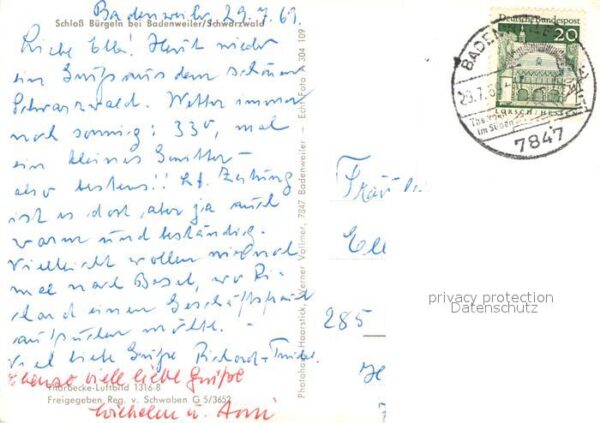 Badenweiler, 29.7.69
Schloß Bürgeln bei Badenweiler/Schwarzwald
Liebe Elle! Heut wieder
ein Gruß aus dem schönen
Schwarzwald. Wetter immer
noch sonnig: 33°, mal
ein kleines Gewitter –
also bestens!! Lt. Zeitung
ist es dort aber ja auch
warm und beständig.
Vielleicht wollen wir noch
mal nach Basel, wo Ri-
chard einen Geschäftsfreund
aufsuchen möchte. –
Viel liebe Grüße Richard +
Ebenso viele liebe Grüße
Wilhelm u. Anni
Thorbecke-Luftbild 1316 8
Freigegeben Reg. v. Schwaben G 5/3652
Photohaus Haarstick, Werner Vollmer, 7847 Badenweiler – Echt Foto A 304 109
Deutsche Bundespost
20
LORSCH/HESSEN
BADENWEILER
29.7.6
im Süden
7847
Frau
Ell
285
privacy protection
Datenschutz